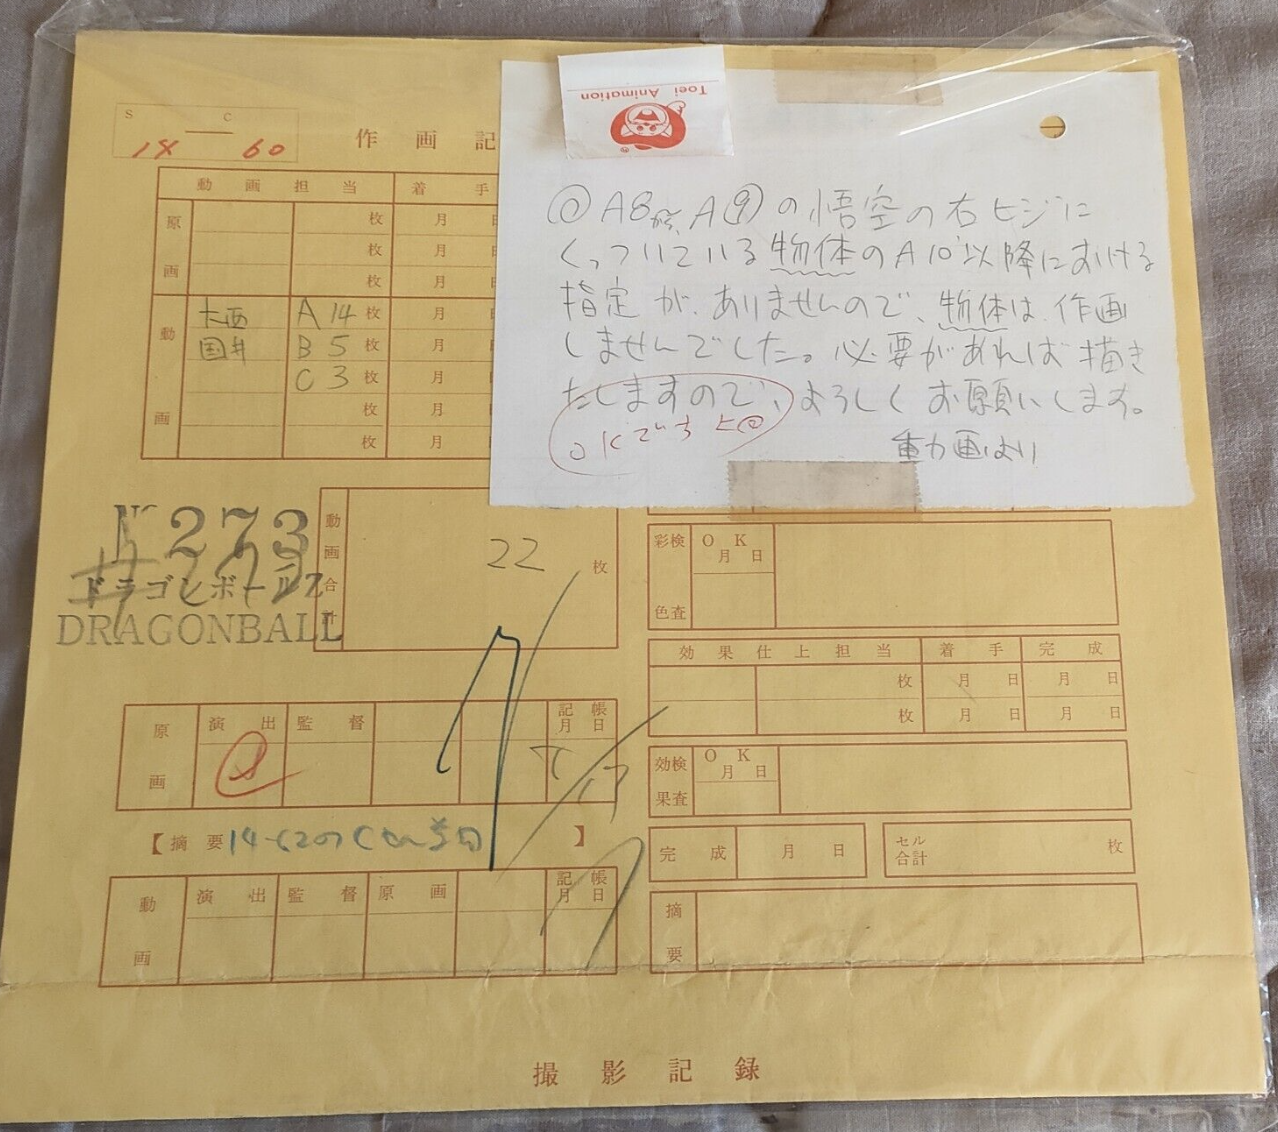 S C
14 60
作画記
Toei Animation
動画担当 着手
原画
枚 月 日
枚 月 日
枚 月 日
動画
大西 A14枚 月
国井 B5枚 月
C3枚 月
枚 月
枚 月
◎A8から、A⑨の悟空の右ヒジに
くっついている物体のA10以降における
指定が、ありませんので、物体は、作画
しませんでした。必要があれば描き
たしますので、よろしくお願いします。
動画より
OKです
273
ドラゴンボールZ
DRAGONBALL
動画合計 22枚
彩色 検査 OK 月日
効果仕上担当 着手 完成
枚 月日 月日
枚 月日 月日
原画 演出 監督 記帳 月日
効果 検査 OK 月日
【摘要 】
完成 月日
セル合計 枚
動画 演出 監督 原画 記帳 月日
摘要
撮影記録